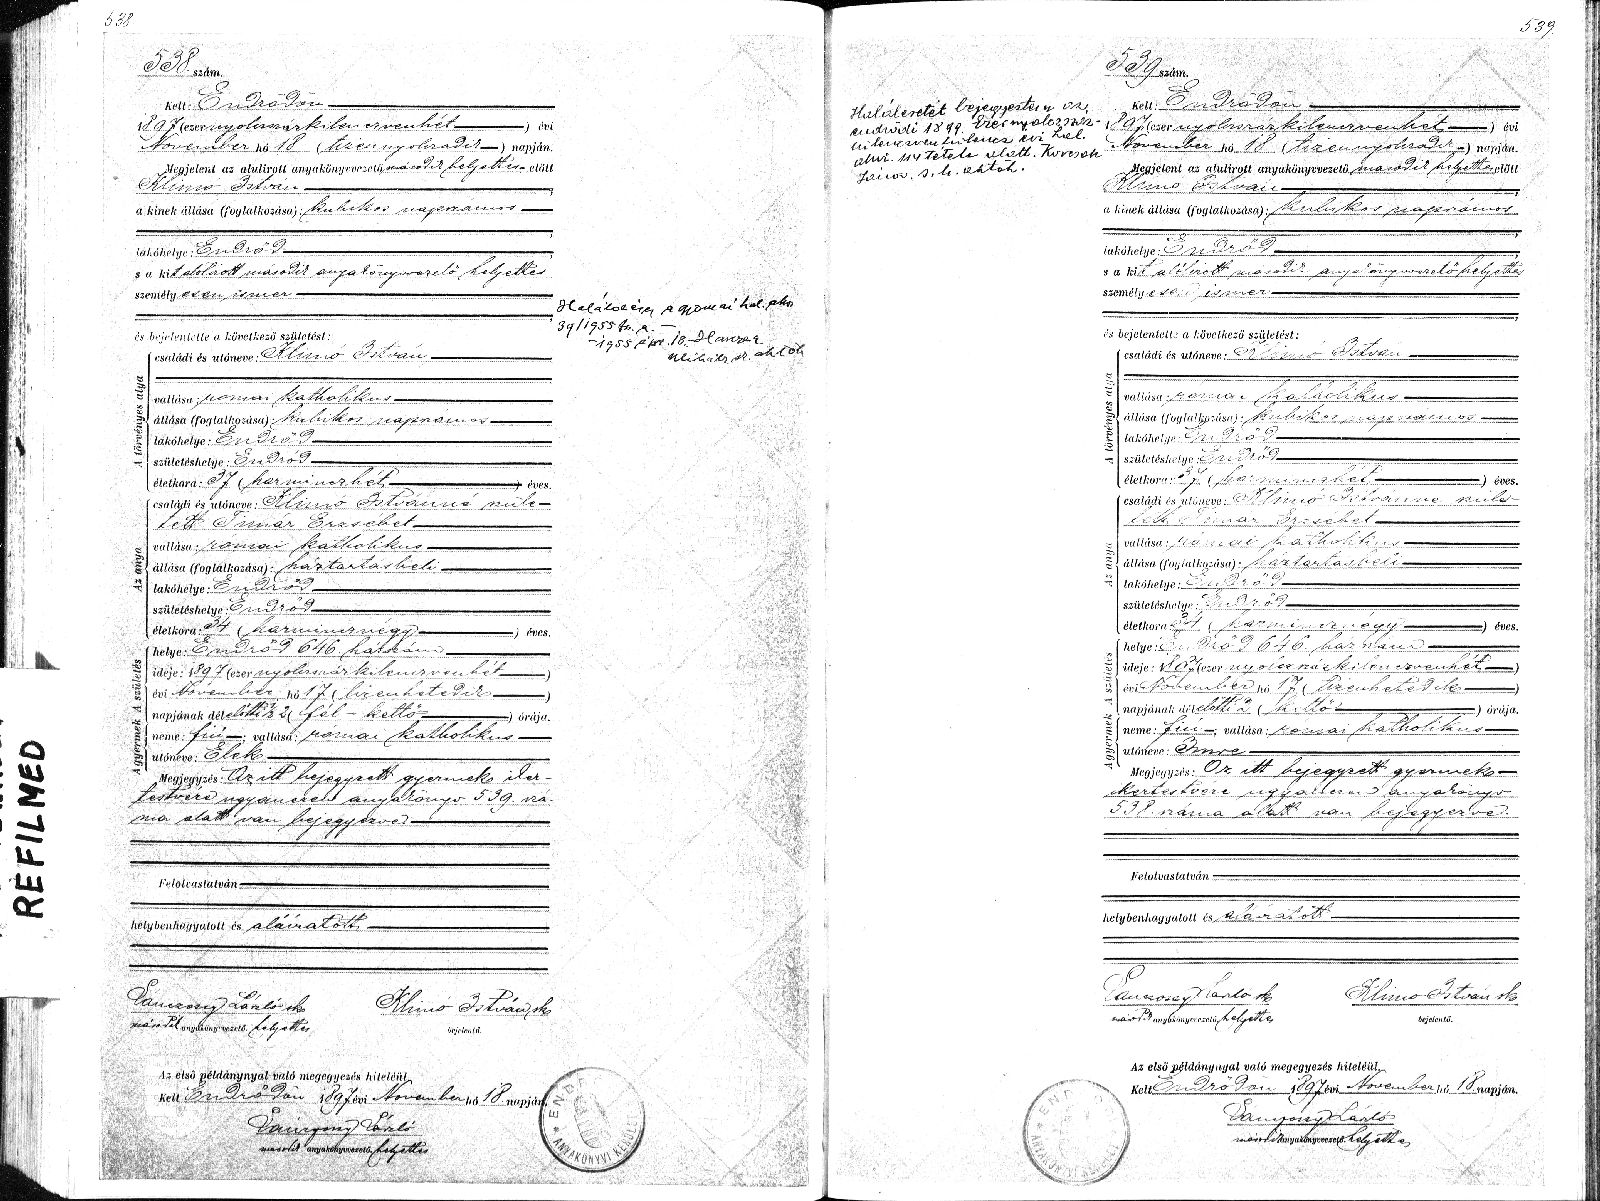 538
538 szám.
Kelt: Endrődön
1897 (ezernyolcszázkilenczvenhét) évi
November hó 18 (tizennyolczadik) napján.
Megjelent az alulirott anyakönyvvezető második helyettes előtt
Klimó István
a kinek állása (foglalkozása): kubikos napszámos
lakóhelye: Endrőd
s a kit alólirott második anyakönyvvezető helyettes
személyesen ismer
és bejelentette a következő születést:
A törvényes atya
családi és utóneve: Klimó István
vallása: romai katholikus
állása (foglalkozása): kubikos napszamos
lakóhelye: Endrőd
születéshelye: Endrőd
életkora: 37 (harminczhét) éves.
Az anya
családi és utóneve: Klimó Istvánné szüle-
tett Timár Erzsébet
vallása: romai katholikus
állása (foglalkozása): háztartásbeli
lakóhelye: Endrőd
születéshelye: Endrőd
életkora: 34 (harmincznégy) éves.
A gyermek A születés
helye: Endrőd 646 házszám
ideje: 1897 (ezernyolcszázkilenczvenhét)
évi November hó 17 (tizenhetedik)
napjának délelőtti 2 (fél - kettő) órája.
neme: fiú; vallása: romai katholikus
utóneve: Elek
Megjegyzés: Az itt bejegyzett gyermek iker-
testvére ugyanezen anyakönyv 539 szá-
ma alatt van bejegyezve
Felolvastatván
helybenhagyatott és aláiratott
Vanczony László sk
második anyakönyvvezető, helyettes
Klimó István, sk
bejelentő.
Az első példánynyal való megegyezés hiteléül,
Kelt Endrődön 1897 évi November hó 18 napján.
Vanczony László
második anyakönyvvezető, helyettes
ANYAKÖNYVI
39/1955
1955
REFILMED
539
539 szám.
Halálesetét bejegyeztem az
endrődi 1899. Ezernyolcszáz-
kilencvenkilenc évi hal.
akvi. 114 tétele alatt. Kovács
János. s. k. aktöh.
Kelt: Endrődön
1897 (ezernyolcszázkilenczvenhét) évi
November hó 18 (tizennyolczadik) napján.
Megjelent az alulirott anyakönyvvezető második helyettes előtt
Klimó István
a kinek állása (foglalkozása): kubikos napszámos
lakóhelye: Endrőd
s a kit alólirott második anyakönyvvezető helyettes
személyesen ismer
és bejelentette a következő születést:
A törvényes atya
családi és utóneve: Klimó István
vallása: romai katholikus
állása (foglalkozása): kubikos napszamos
lakóhelye: Endrőd
születéshelye: Endrőd
életkora: 37 (harminczhét) éves.
Az anya
családi és utóneve: Klimó Istvánné szüle-
tett Timár Erzsébet
vallása: romai katholikus
állása (foglalkozása): háztartásbeli
lakóhelye: Endrőd
születéshelye: Endrőd
életkora: 34 (harmincznégy) éves.
A gyermek A születés
helye: Endrőd 646 házszám
ideje: 1897 (ezernyolcszázkilenczvenhét)
évi November hó 17 (tizenhetedik)
napjának délelőtti 2 (kettő) órája.
neme: fiú; vallása: romai katholikus
utóneve: Imre
Megjegyzés: Az itt bejegyzett gyermek
ikertestvére ugyanezen anyakönyv
538 száma alatt van bejegyezve.
Felolvastatván
helybenhagyatott és aláiratott
Vanczony László sk
második anyakönyvvezető, helyettes
Klimó István sk
bejelentő.
Az első példánynyal való megegyezés hiteléül,
Kelt Endrődön 1897 évi November hó 18 napján.
Vanczony László
második anyakönyvvezető, helyettes
ANYAKÖNYVI